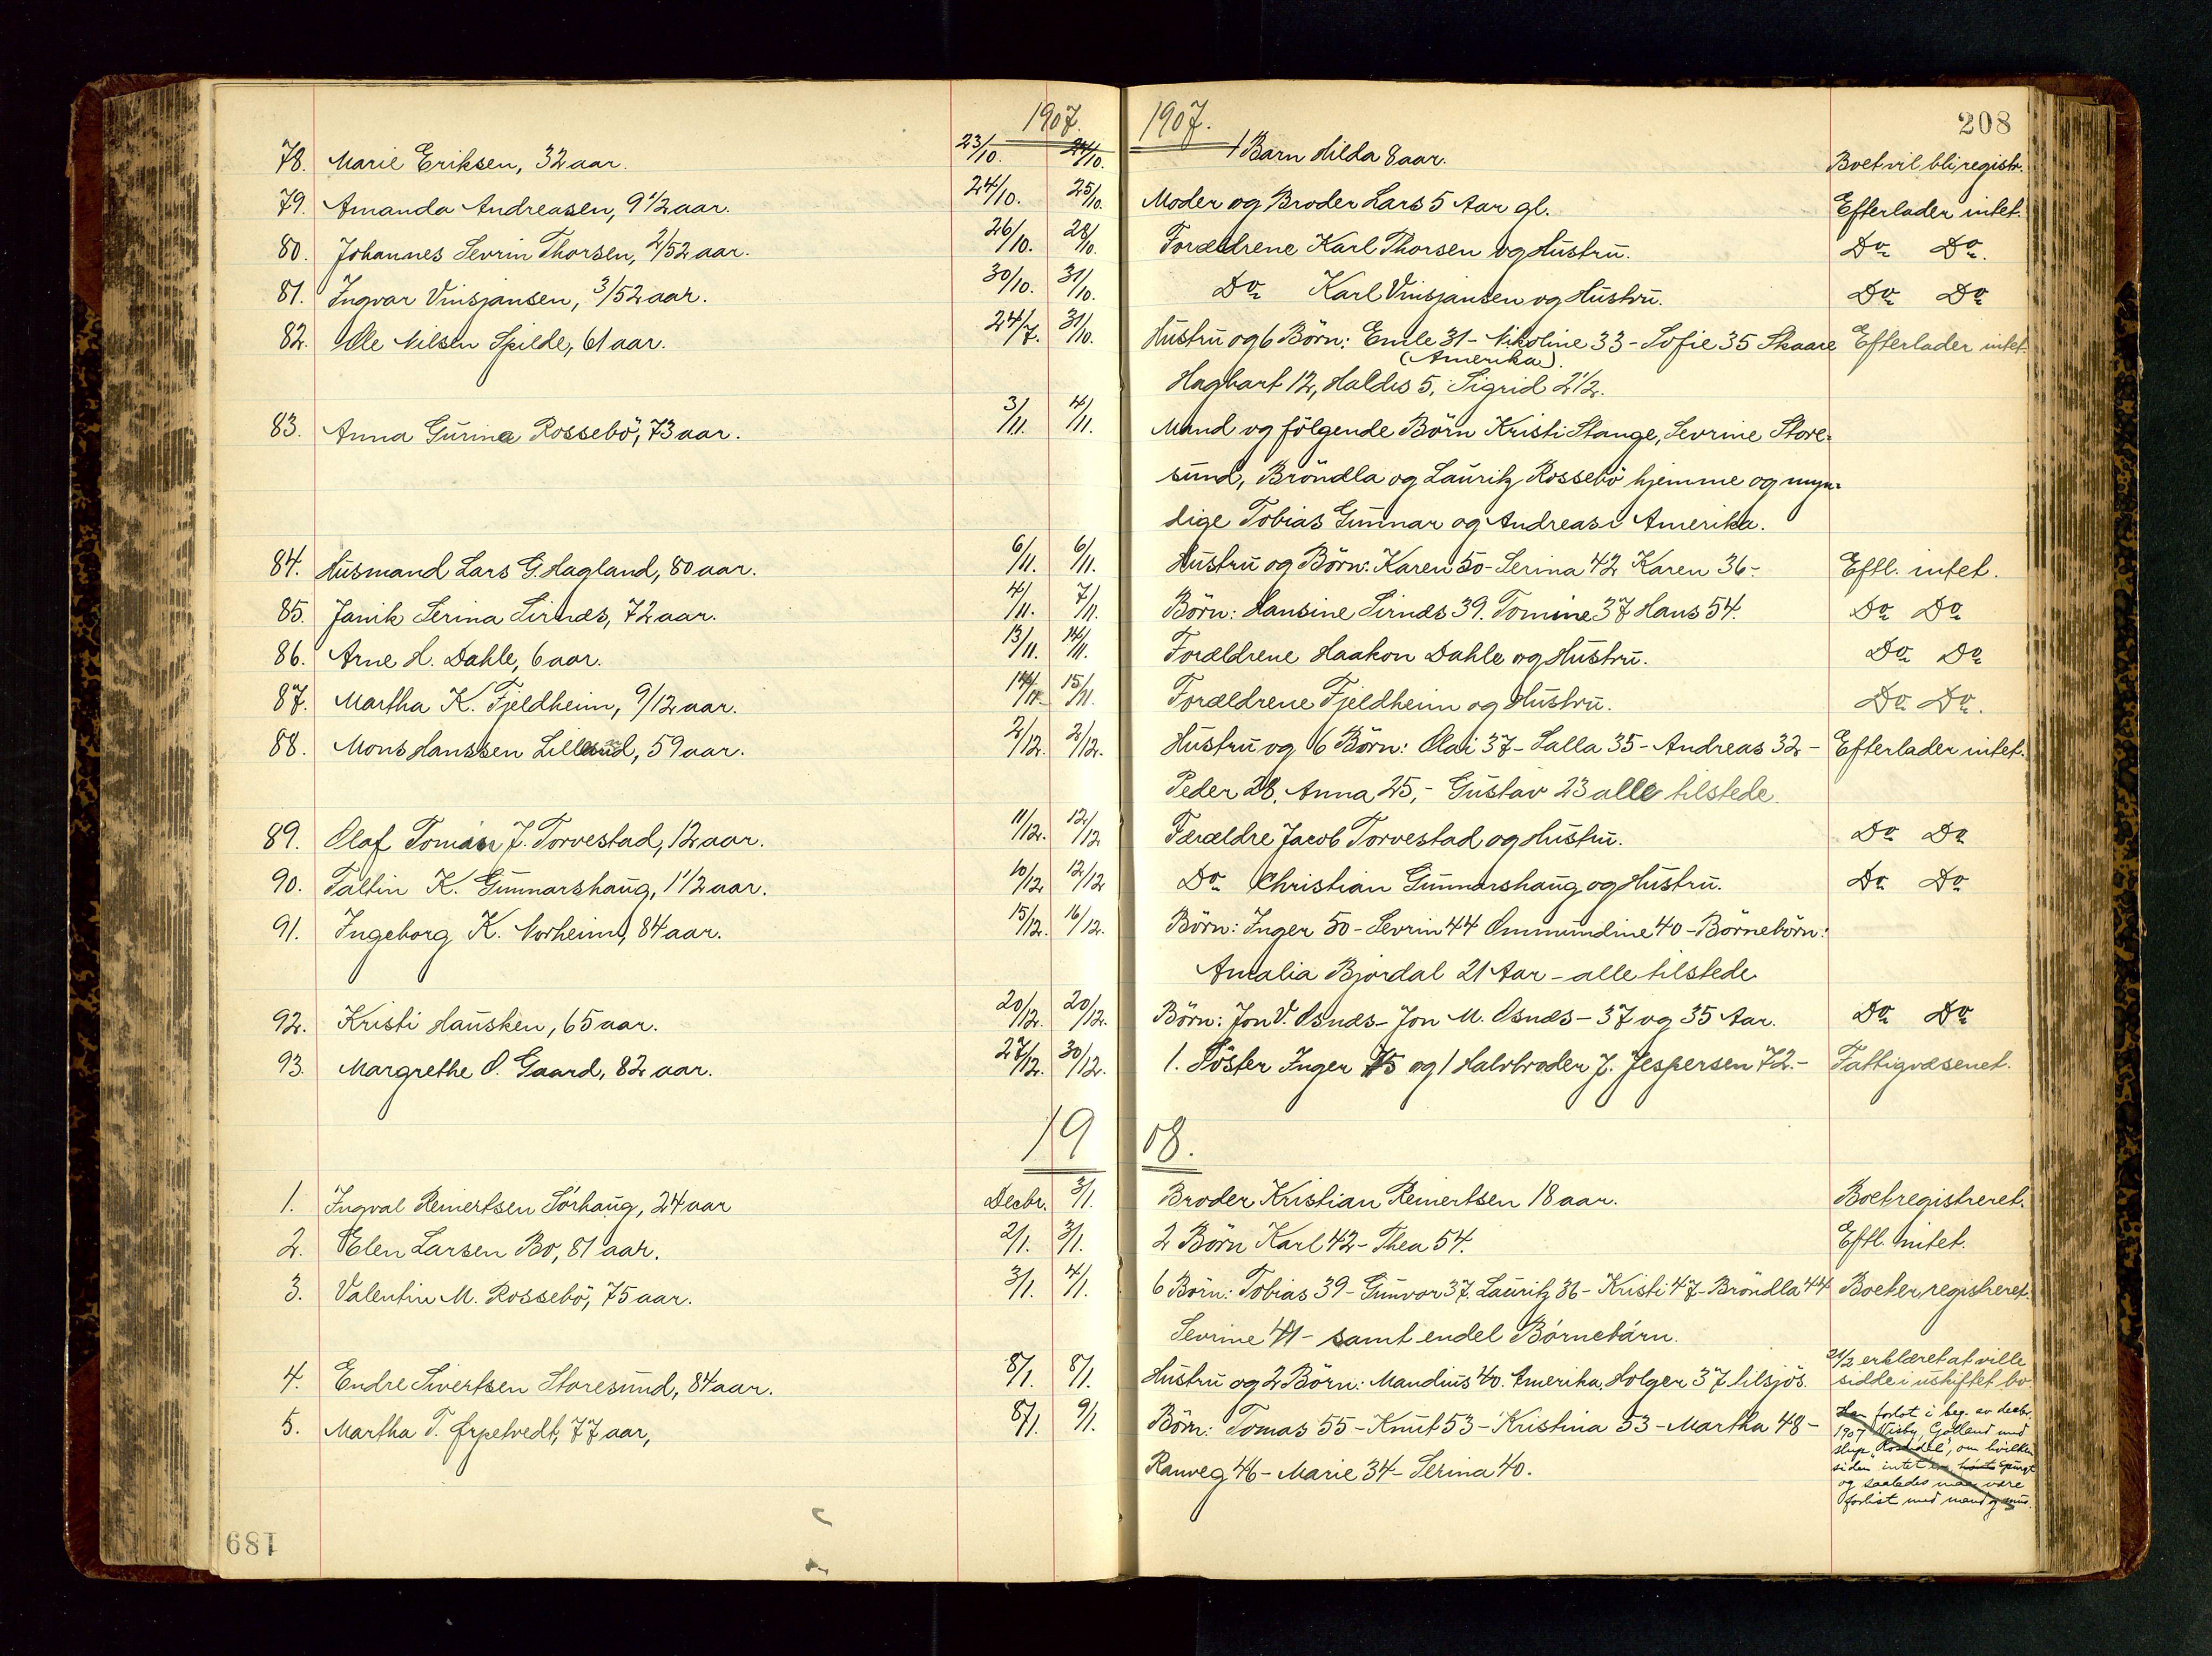 1907. 1907. 208
78. Marie Eriksen, 32 aar. 23/10. 24/10. 1 Barn Hilda 8 aar. Boet vil bli registr.
79. Amanda Andreasen, 9 1/2 aar. 24/10. 25/10. Moder og Broder Lars 5 Aar gl. Efterlader intet.
80. Johannes Sevrin Thorsen, 2/52 aar. 26/10. 28/10. Forældrene Karl Thorsen og Hustru. Do Do.
81. Ingvar Vinsjansen, 3/52 aar. 30/10. 31/10. Do Karl Vinsjansen og Hustru. Do Do
82. Ole Nilsen Spilde, 61 aar. 24/7. 31/10. Hustru og 6 Börn: Emle 31 - Nikoline 33 - Sofie 35 Skaare Efterlader intet.
(Amerika).
Hagbart 12, Haldis 5, Sigrid 2 1/2.
83. Anna Gurina Rossebö, 73 aar. 3/11. 4/11. Mand og fölgende Börn Kristi Stange, Sevrine Store-
sund, Bröndla og Lauritz Rossebö hjemme og myn-
dige Tobias Gunnar og Andreas i Amerika.
84. Husmand Lars G. Hagland, 80 aar. 6/11. 6/11. Hustru og Börn: Karen 50 - Serina 42 Karen 36 - Eftl. intet.
85. Janik Serina Sirnæs, 72 aar. 4/11. 7/11. Börn: Hansine Sirnæs 39. Tomine 37 Hans 54. Do Do
86. Arne H. Dahle, 6 aar. 13/11. 14/11. Forældrene Haakon Dahle og Hustru. Do Do
87. Martha K. Fjeldheim, 9/12 aar. 14/11. 15/11. Forældrene Fjeldheim og Hustru. Do Do.
88. Mons Hanssen Lillesund, 59 aar. 2/12. 2/12. Hustru og 6 Börn: Olai 37 - Salla 35 - Andreas 32 - Efterlader intet.
Peder 28, Anna 25, - Gustav 23 alle tilstede
89. Olaf Tomas J. Torvestad, 12 aar. 11/12. 12/12 Forældre Jacob Torvestad og Hustru. Do Do
90. Taltin K. Gunnarshaug, 1 1/2 aar. 10/12 12/12 Do Christian Gunnarshaug og Hustru. Do Do
91. Ingeborg K. Norheim, 84 aar. 15/12. 16/12. Börn: Inger 50 - Sevrin 44 Ommundine 40 - Börnebörn:
Amalia Bjordal 21 Aar - alle tilstede
92. Kristi Hausken, 65 aar. 20/12. 20/12. Börn: Jon V. Osnæs - Jon M. Osnæs - 37 og 35 Aar. Do Do
93. Margrethe O. Gaard, 82 aar. 27/12. 30/12. 1. Söster Inger 75 og 1 Halvbroder J. Jespersen 72. - Fattigvæsenet.
1908.
1. Ingval Reinertsen Sörhaug, 24 aar Decbr. 3/1. Broder Kristian Reinertsen 18 aar. Boet registreret.
2. Elen Larsen Bo, 81 aar. 2/1. 3/1. 2 Börn Karl 42 - Thea 54. Eftl. intet.
3. Valentin M. Rossebö, 75 aar. 3/1. 4/1. 6 Börn: Tobias 39 - Gunvor 37. Lauritz 36 - Kristi 47 - Bröndla 44 Boet er registreret.
Sevrine 41 - samt endel Börnebörn.
4. Endre Sivertsen Storesund, 84 aar. 8/1. 8/1. Hustru og 2 Börn: Mandius 40. Amerika, Holger 37 tilsjös. 21/2 erklæret at ville
sidde i uskiftet bo
5. Martha T. Ørpetvedt, 77 aar, 8/1. 9/1. Börn: Tomas 55 - Knut 53 - Kristina 53 - Martha 48 -
Ranveg 46 - Marie 34 - Serina 40.
Han forlot i beg. av decbr.
1907 Visby, Gotland med
om hvilken
siden intet er hørt spurgt
og saaledes maa være
forlist med mand og mus.
189